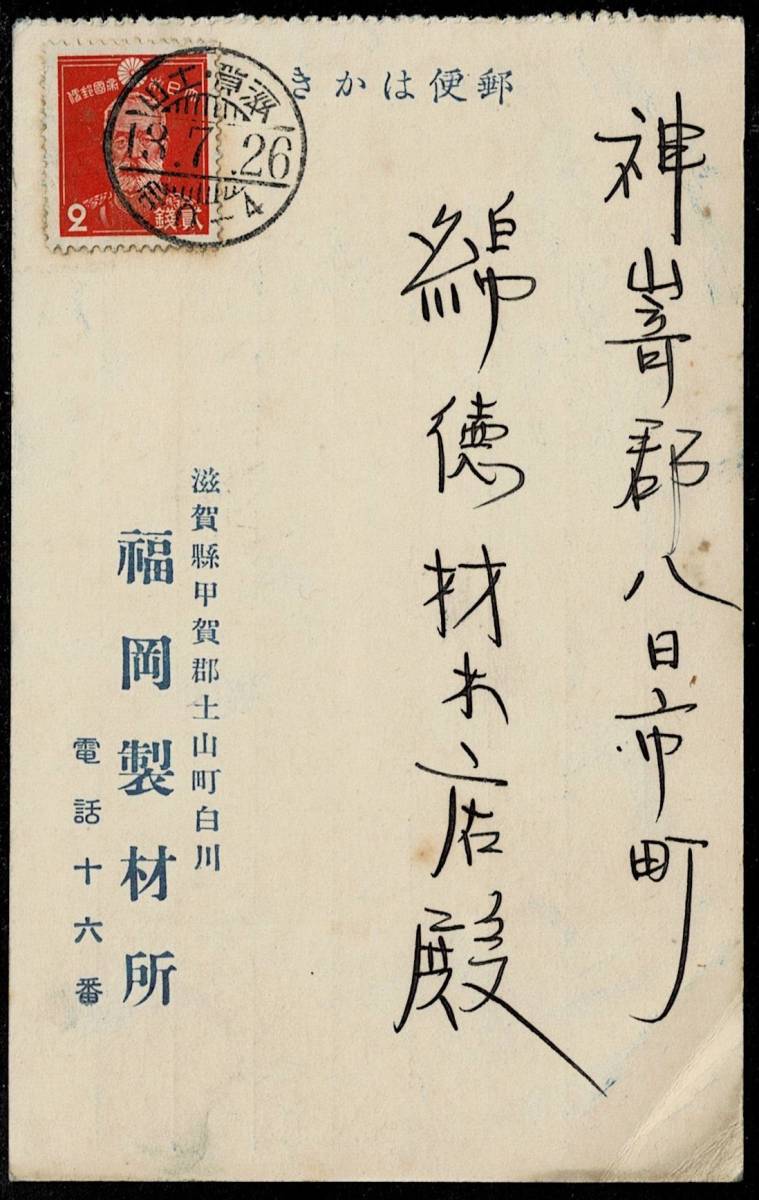 郵便はかき
神崎郡八日市町
綿徳材木店殿
滋賀縣甲賀郡土山町白川
福岡製材所
電話十六番
滋賀・土山
13.7.26
0-4
2
貳錢